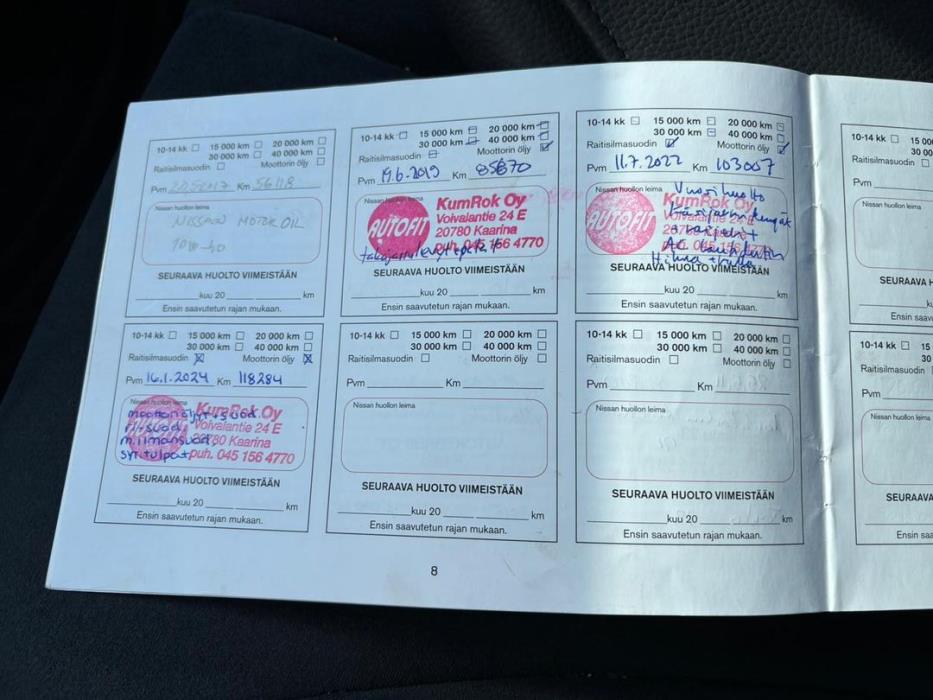 10-14 kk 15 000 km 20 000 km
30 000 km 40 000 km
Raitisilmasuodin Moottorin öljy
Pvm Km 56118
Nissan huollon leima
NISSAN MOTOR OIL
10W-40
SEURAAVA HUOLTO VIIMEISTÄÄN
kuu 20 km
Ensin saavutetun rajan mukaan.
10-14 kk 15 000 km 20 000 km
30 000 km 40 000 km
Raitisilmasuodin Moottorin öljy
Pvm 19.6.2019 Km 85670
Nissan huollon leima
AUTOFIT
KumRok Oy
Voivalantie 24 E
20780 Kaarina
puh. 045 156 4770
SEURAAVA HUOLTO VIIMEISTÄÄN
kuu 20 km
Ensin saavutetun rajan mukaan.
10-14 kk 15 000 km 20 000 km
30 000 km 40 000 km
Raitisilmasuodin Moottorin öljy
Pvm 11.7.2022 Km 103007
Nissan huollon leima
AUTOFIT
KumRok Oy
Voivalantie 24 E
20780 Kaarina
puh. 045 156 4770
Vuosihuolto
SEURAAVA HUOLTO VIIMEISTÄÄN
kuu 20 km
Ensin saavutetun rajan mukaan.
10-14 kk 15 00
30 00
Raitisilmasuodin
Pvm
Nissan huollon leima
SEURAAVA H
Ensin saav
10-14 kk 15 000 km 20 000 km
30 000 km 40 000 km
Raitisilmasuodin Moottorin öljy
Pvm 16.1.2024 Km 118284
Nissan huollon leima
KumRok Oy
Voivalantie 24 E
20780 Kaarina
puh. 045 156 4770
m.ilmansuod.
syt.tulpat
SEURAAVA HUOLTO VIIMEISTÄÄN
kuu 20 km
Ensin saavutetun rajan mukaan.
10-14 kk 15 000 km 20 000 km
30 000 km 40 000 km
Raitisilmasuodin Moottorin öljy
Pvm Km
Nissan huollon leima
SEURAAVA HUOLTO VIIMEISTÄÄN
kuu 20 km
Ensin saavutetun rajan mukaan.
10-14 kk 15 000 km 20 000 km
30 000 km 40 000 km
Raitisilmasuodin Moottorin öljy
Pvm Km
Nissan huollon leima
SEURAAVA HUOLTO VIIMEISTÄÄN
kuu 20 km
Ensin saavutetun rajan mukaan.
10-14 kk 15
30
Raitisilmasuodin
Pvm
Nissan huollon leima
SEURAAVA
Ensin saa
8